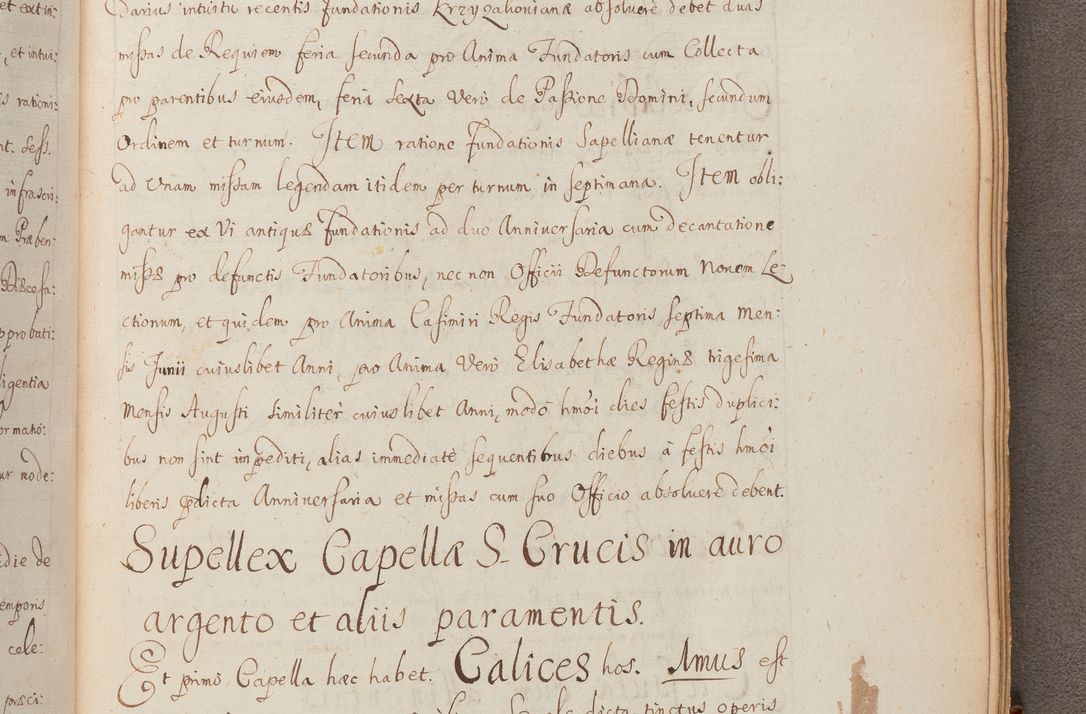 et ext in:
, et intui:
is rationi:
nt. Sess.
infrascri:
m Præben:
Diœcesa:
pprobati:
ligentia
ormatio:
ur mode:
die de
emporis
cele:
præci:
darius intuitu recentis fundationis Krzyzanovianæ absolvere debet duas
missas de Requiem feria secunda pro Anima Fundatoris cum Collecta
pro parentibus eiusdem, feria sexta Vero de Passione Domini, secundum
Ordinem et turnum. Item ratione fundationis Sapellianæ tenentur
ad Unam missam legendam itidem per turnum in septimana. Item obli:
gantur ex Vi antiquæ fundationis ad duo Anniversaria cum decantatione
missæ pro defunctis Fundatoribus, nec non Officii Defunctorum Novem Le:
ctionum, et quidem pro Anima Casimiri Regis Fundatoris septima Men:
sis Junii cuiuslibet Anni, pro Anima Vero Elisabethæ Reginæ trigesima
Mensis Augusti similiter cuiuslibet Anni, modo hmoi dies festis duplici:
bus non sint impediti, alias immediate sequentibus diebus à festis hmoi
liberis pdicta Anniversaria et missas cum suo Officio absolvere debent.
Supellex Capellæ S. Crucis in auro
argento et aliis paramentis.
Et primo Capella hæc habet. Calices hos. Imus est
dicta tinctus operis